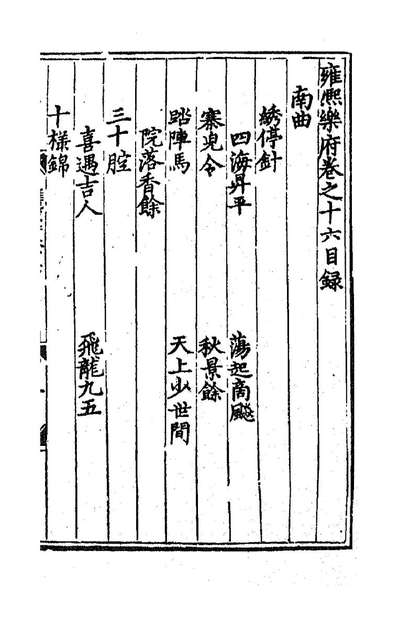 雍熙樂府卷之十六目録
南曲
綉停針
四海昇平 蕩起商飈
寨兒令
秋景餘
踏陣馬
天上少世間
院落香餘
三十腔
喜遇吉人 飛龍九五
十樣錦